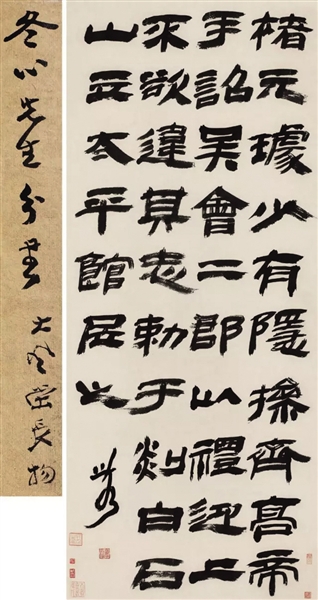 楮元璩少有隱操齊高帝
手詔吳會二郡以禮迎上
不欲違其志勅于剡白石
山立太平館居之
冬心先生分書
大風堂長物